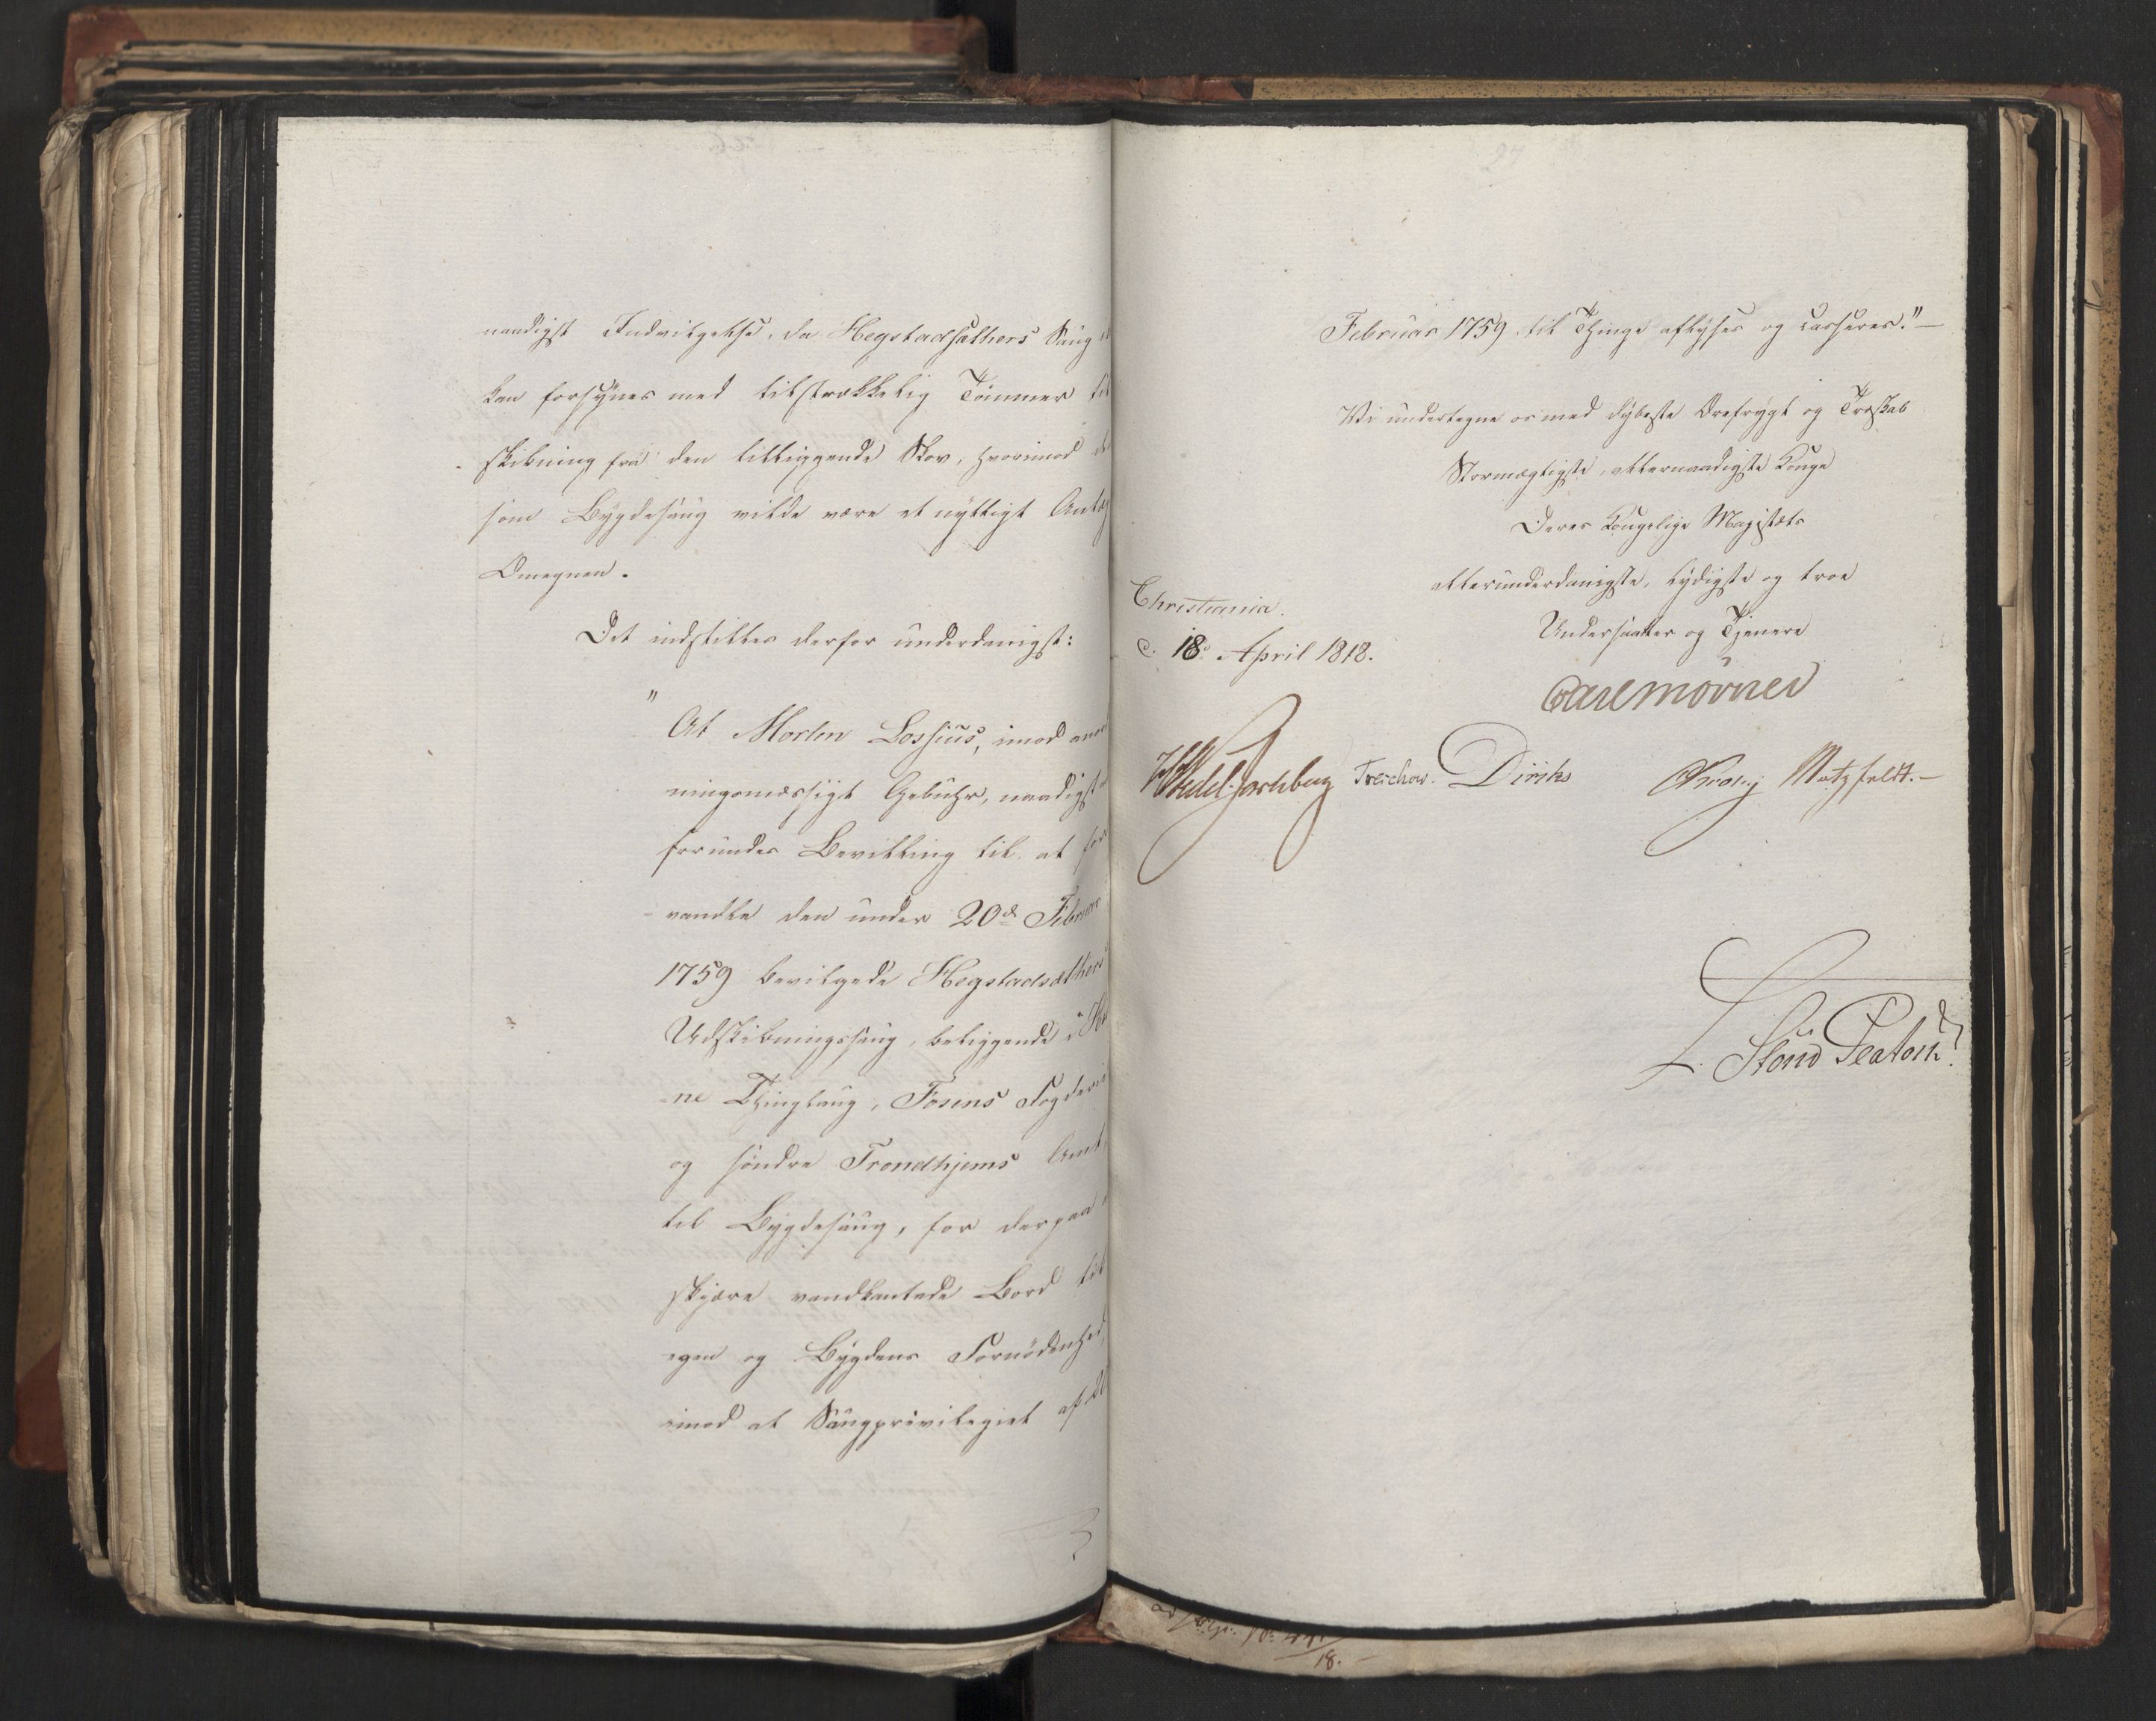 naadigst Indvilgelse, da Hegstadsæthers Saug
kan forsynes med tilstrækkelig Tømmer til
skibning fra den tilliggende Skov, hvorimod
som Bygdesaug vilde være et nyttigt Anlæg
Omegnen.
Det indstilles derfor underdanigst:
"At Morten Lossius, imod
ningsmæssigt Gebuhr, naadigst
forundes Bevilling til at for
vandle den under 20de Februar
1759 bevilgede Hegstadsæthers
Udskibningssaug, beliggende i
ne Thinglaug, Fosens Fogderie
og søndre Trondhjems Amt,
til Bygdesaug, for derpaa
skjære vandkantede Bord til
egen og Bygdens Fornødenhed,
imod at Saugprivilegiet af 20
27
Februar 1759 til Thinge aflyses og casseres." —
Vi undertegne os med dybeste Ærefrygt og Troskab
Stormægtigste, allernaadigste Konge
Deres Kongelige Majestæts
allerunderdanigste, lydigste og troe
Christiania
Undersaatter og Tjenere
d. 18de April 1818.
Carl Mörner
Wedel Jarlsberg Treschow. Diriks Krog Motzfeldt. —
18. —